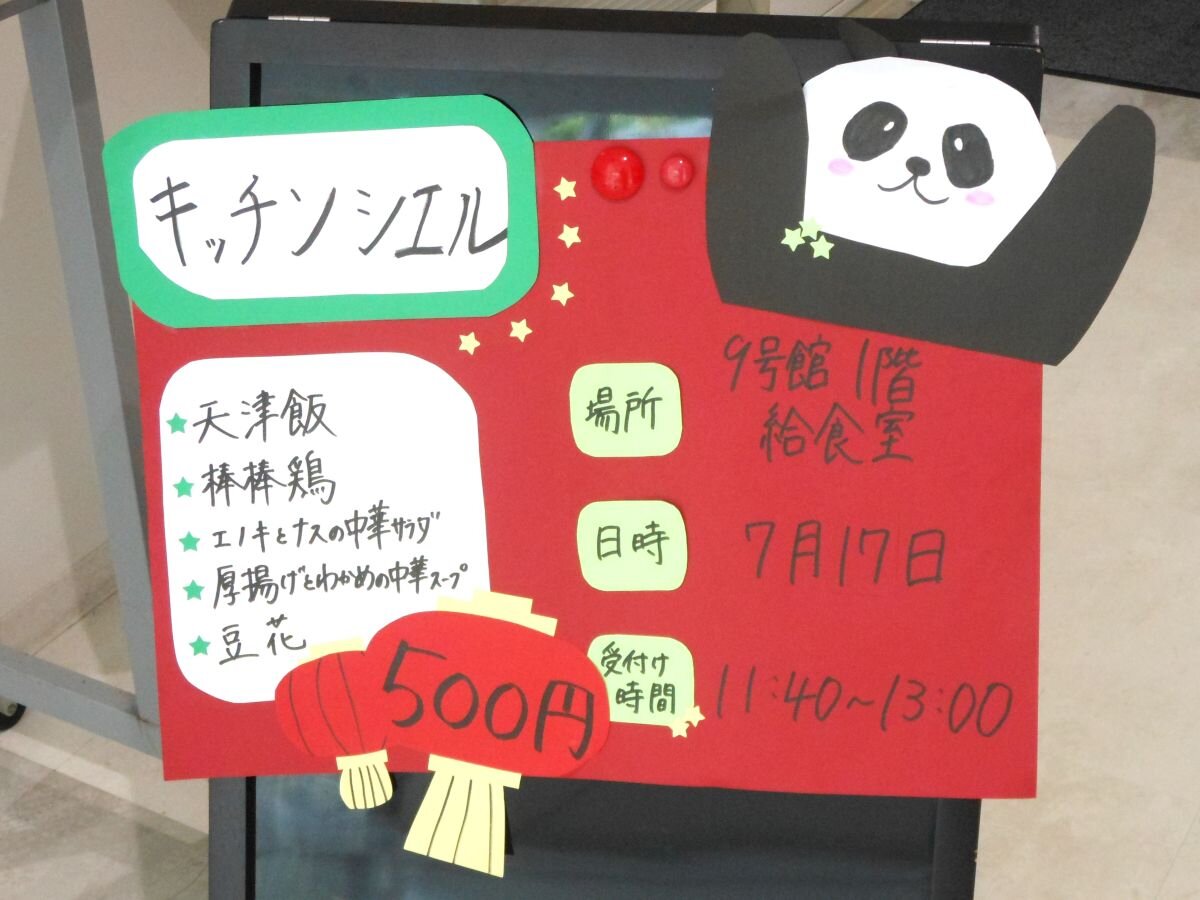 キッチンシエル
天津飯
棒棒鶏
エノキとナスの中華サラダ
厚揚げとわかめの中華スープ
豆花
500円
場所
9号館 1階
給食室
日時
7月17日
受付け
時間
11:40~13:00